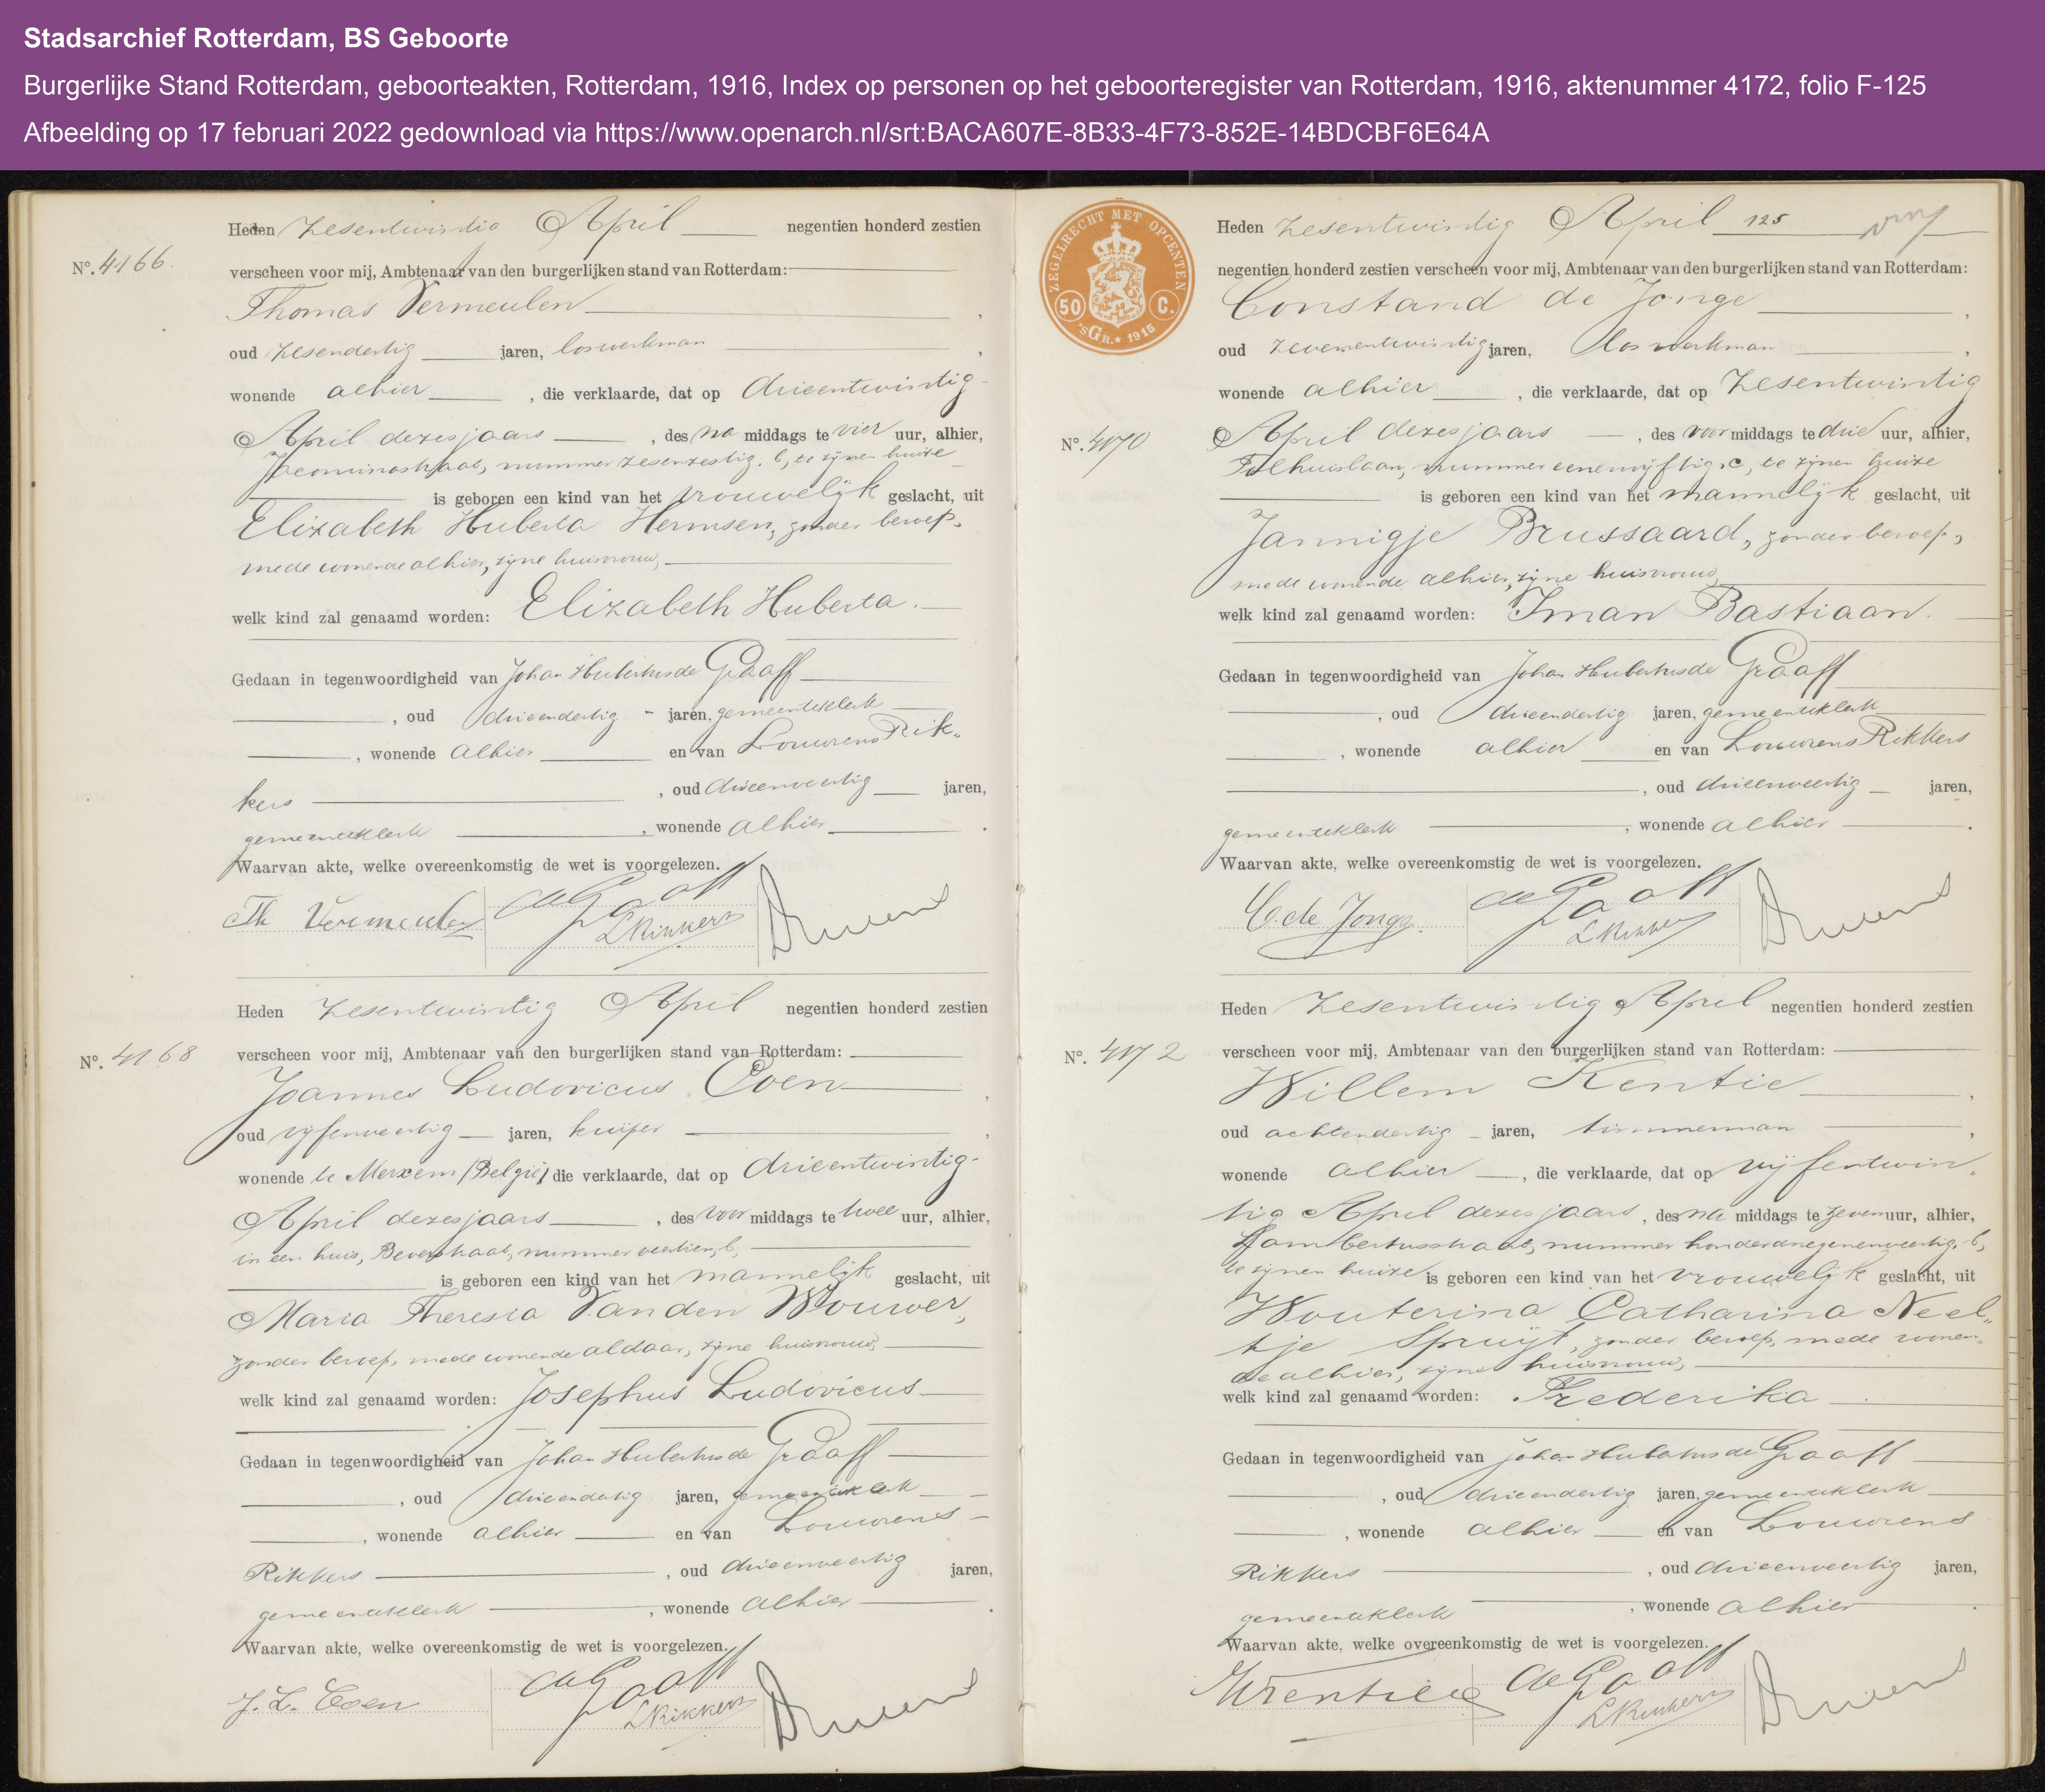 Stadsarchief Rotterdam, BS Geboorte
Burgerlijke Stand Rotterdam, geboorteakten, Rotterdam, 1916, Index op personen op het geboorteregister van Rotterdam, 1916, aktenummer 4172, folio F-125
Afbeelding op 17 februari 2022 gedownload via https://www.openarch.nl/srt:BACA607E-8B33-4F73-852E-14BDCBF6E64A
Heden Zesentwintig April negentien honderd zestien
No. 4166. verscheen voor mij, Ambtenaar van den burgerlijken stand van Rotterdam:
Thomas Vermeulen,
oud zesendertig jaren, loswerkman,
wonende alhier, die verklaarde, dat op drieentwintig
April dezes jaars, des na middags te vier uur, alhier,
nummer zesenzestig. b, te zijnen huize
is geboren een kind van het vrouwelijk geslacht, uit
Elizabeth Huberta Hermsen, zonder beroep,
mede wonende alhier, zijne huisvrouw,
welk kind zal genaamd worden: Elizabeth Huberta.
Gedaan in tegenwoordigheid van Johan Hubertus de Graaff
, oud drieendertig jaren, gemeenteklerk
, wonende alhier en van Louwrens Rik-
kers, oud drieenveertig jaren,
gemeenteklerk, wonende alhier.
Waarvan akte, welke overeenkomstig de wet is voorgelezen.
Th Vermeulen de Graaff
L Rikkers
Heden Zesentwintig April negentien honderd zestien
No. 4168 verscheen voor mij, Ambtenaar van den burgerlijken stand van Rotterdam:
Joannes Ludovicus Coen,
oud vijfenveertig jaren, kuiper,
wonende te Merxem (België) die verklaarde, dat op drieentwintig
April dezes jaars, des voor middags te twee uur, alhier,
in een huis, Beverstraat, nummer veertien, b,
is geboren een kind van het mannelijk geslacht, uit
Maria Theresia Van den Wouwer,
zonder beroep, mede wonende aldaar, zijne huisvrouw,
welk kind zal genaamd worden: Josephus Ludovicus
Gedaan in tegenwoordigheid van Johan Hubertus de Graaff
, oud drieendertig jaren, gemeenteklerk
, wonende alhier en van Louwrens
Rikkers, oud drieenveertig jaren,
gemeenteklerk, wonende alhier.
Waarvan akte, welke overeenkomstig de wet is voorgelezen.
J. L. Coen de Graaff
L Rikkers
ZEGELRECHT MET OPCENTEN
50 C.
'sGr. * 1915
Heden Zesentwintig April 125
negentien honderd zestien verscheen voor mij, Ambtenaar van den burgerlijken stand van Rotterdam:
Constand de Jonge,
oud zevenentwintig jaren, los werkman,
wonende alhier, die verklaarde, dat op Zesentwintig
No. 4170 April dezes jaars, des voor middags te drie uur, alhier,
Tolhuislaan, nummer eenenvijftig. c, te zijnen huize
is geboren een kind van het mannelijk geslacht, uit
Jannigje Brussaard, zonder beroep,
mede wonende alhier, zijne huisvrouw,
welk kind zal genaamd worden: Iman Bastiaan.
Gedaan in tegenwoordigheid van Johan Hubertus de Graaff
, oud drieendertig jaren, gemeenteklerk
, wonende alhier en van Louwrens Rikkers
, oud drieenveertig jaren,
gemeenteklerk, wonende alhier.
Waarvan akte, welke overeenkomstig de wet is voorgelezen.
C. de Jonge. de Graaff
L Rikkers
Heden Zesentwintig April negentien honderd zestien
No. 4172 verscheen voor mij, Ambtenaar van den burgerlijken stand van Rotterdam:
Willem Kentie,
oud achtendertig jaren, timmerman,
wonende alhier, die verklaarde, dat op vijfentwin-
tig April dezes jaars, des na middags te zeven uur, alhier,
Lambertusstraat, nummer honderdnegenenveertig. b,
te zijnen huize is geboren een kind van het vrouwelijk geslacht, uit
Wouterina Catharina Neel-
tje Spruijt, zonder beroep, mede wonen-
de alhier, zijne huisvrouw,
welk kind zal genaamd worden: Frederika.
Gedaan in tegenwoordigheid van Johan Hubertus de Graaff
, oud drieendertig jaren, gemeenteklerk
, wonende alhier en van Louwrens
Rikkers, oud drieenveertig jaren,
gemeenteklerk, wonende alhier.
Waarvan akte, welke overeenkomstig de wet is voorgelezen.
WKentie de Graaff
L Rikkers